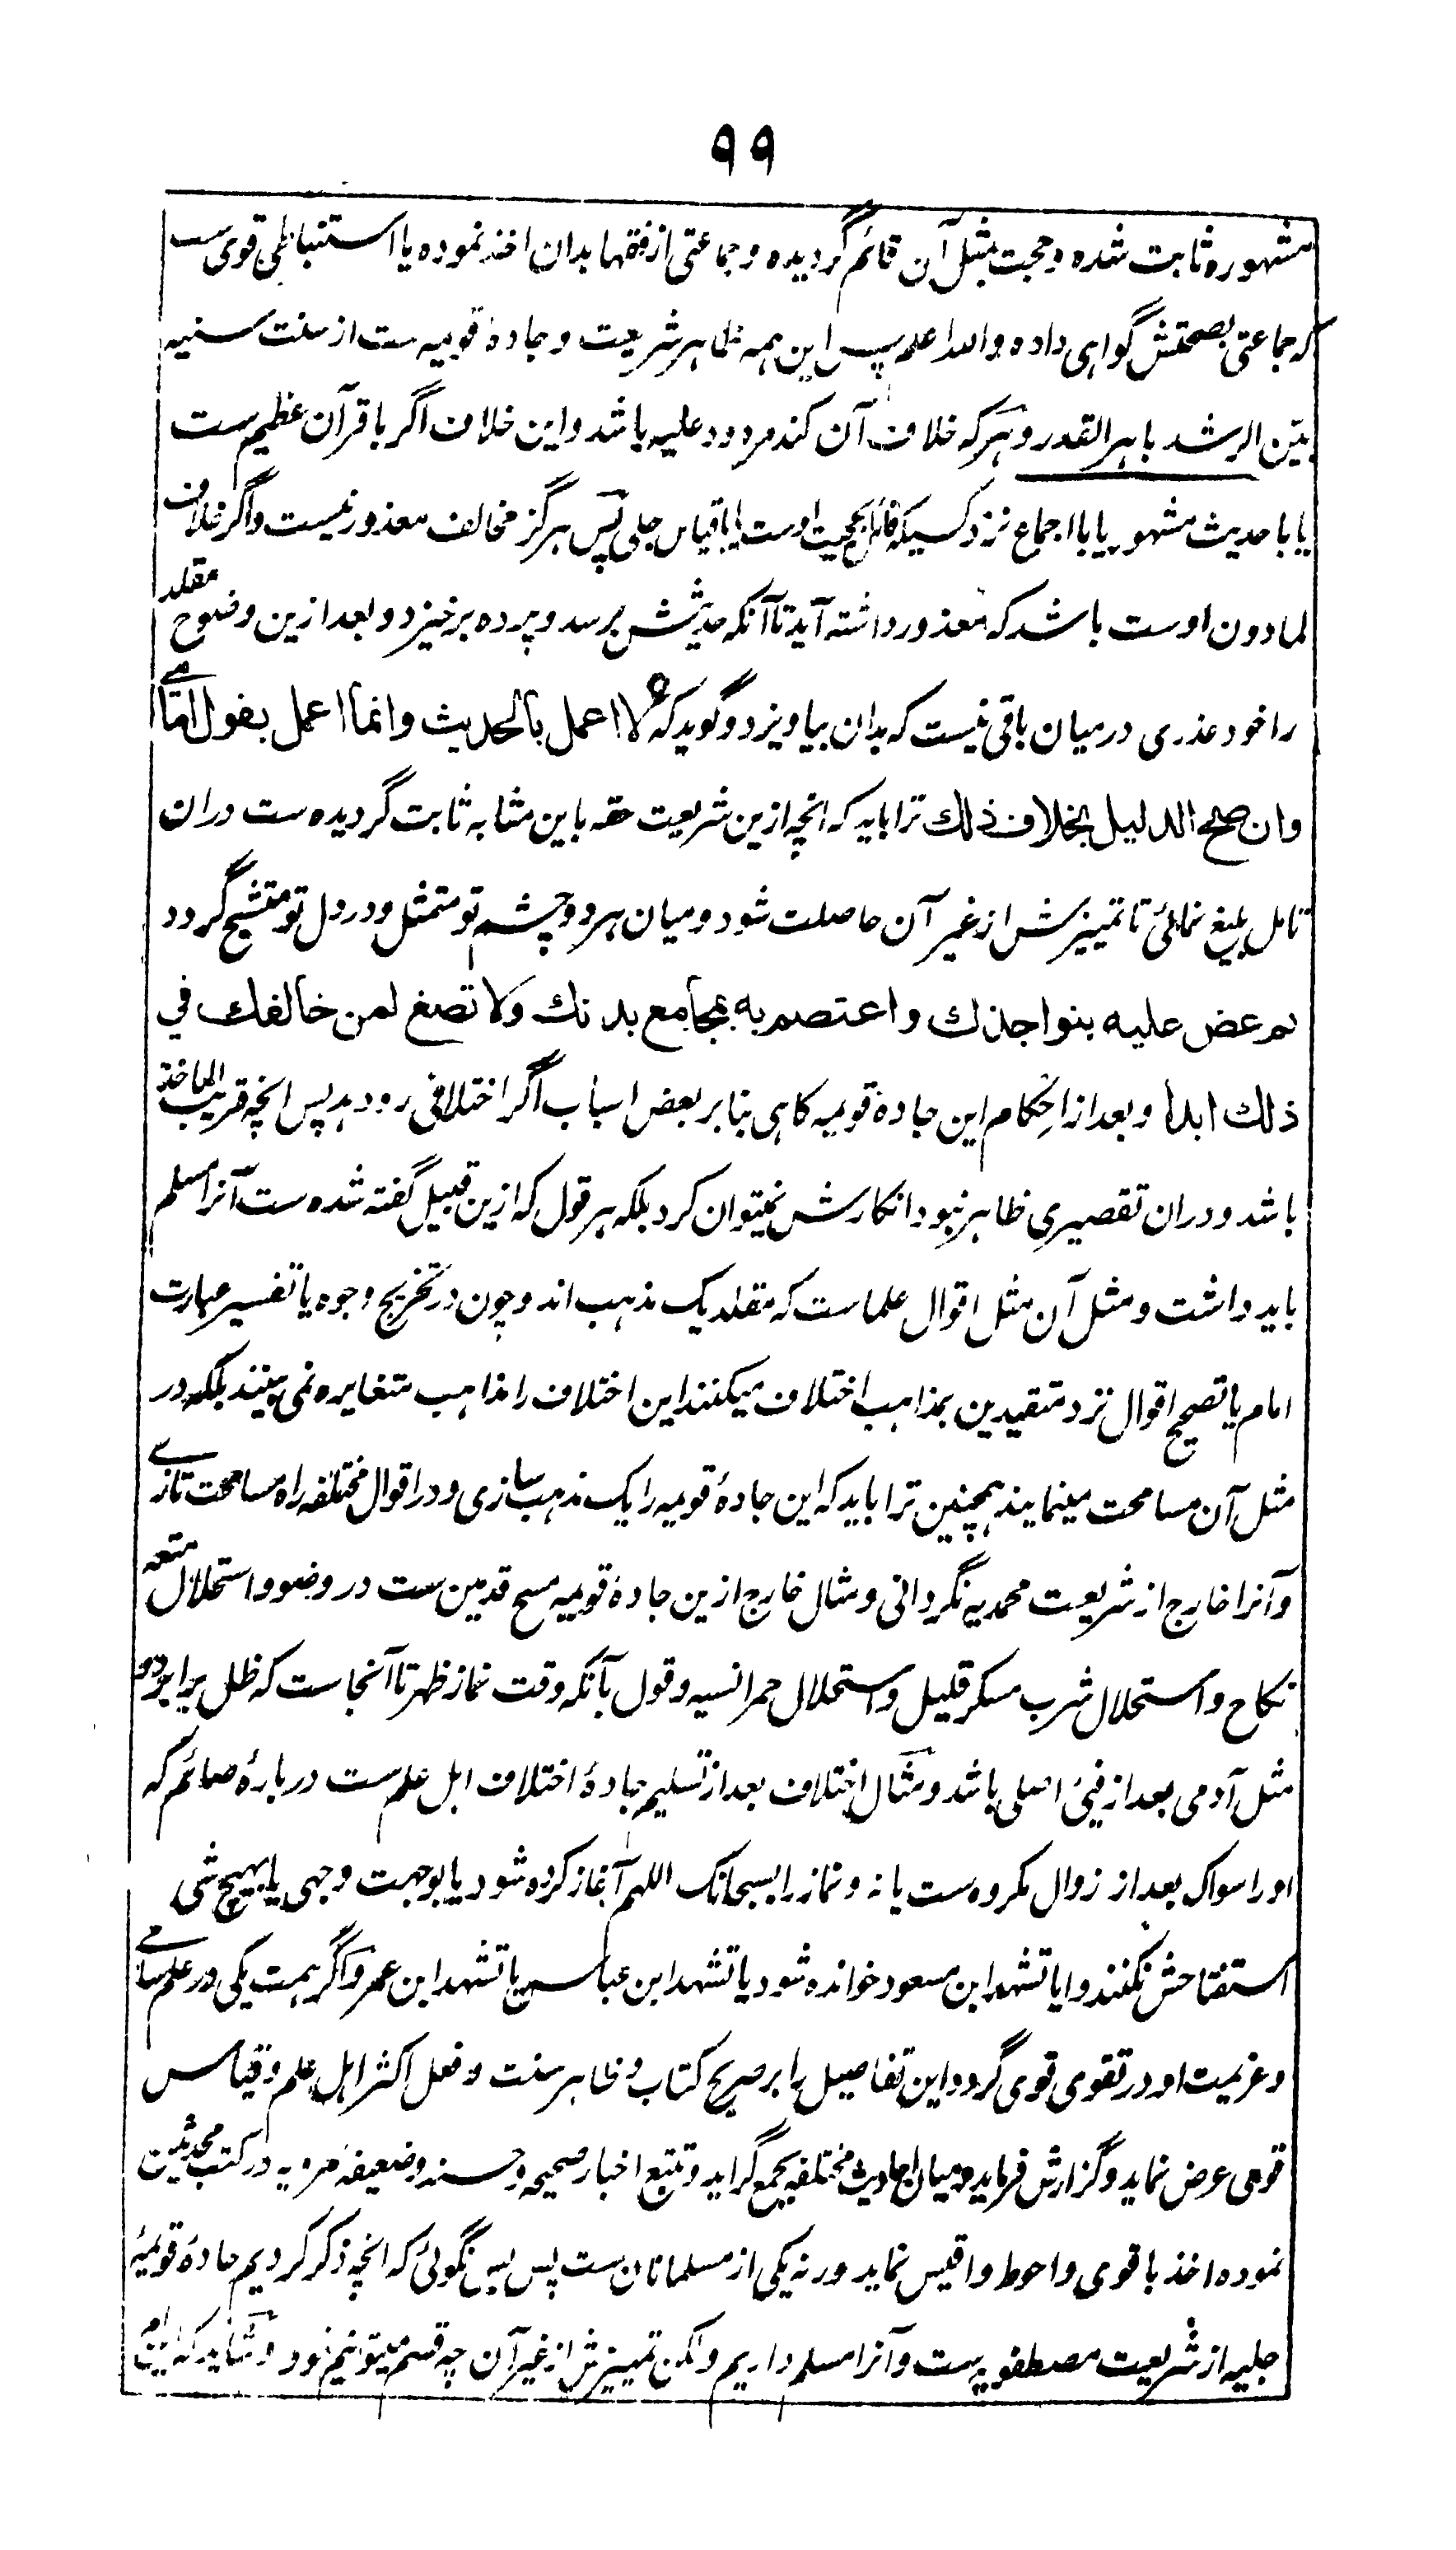 ۹۹
مشهوره ثابت شده و حجت بمثل آن قائم گردیده و جماعتی از فقها بدان اخذ نموده یا استنباطی قوی ست
که جماعتی بصحتش گواهی داده والله اعلم پس این همه ظاهر شریعت و جادهٔ قویمه ست از سنت سنیه
بیّن الرشد باهر القدر و هرکه خلاف آن کند مردود علیه باشد و این خلاف اگر با قرآن عظیم ست
یا با حدیث مشهور یا با اجماع نزد کسیکه قائل بحجیت اوست یا با قیاس جلی پس هرگز مخالف معذور نیست و اگر خلاف
لما دون اوست باشد که معذور داشته آید تا آنکه حدیثش برسد و پرده برخیزد و بعد ازین وضوح مقلد
را خود عذری درمیان باقی نیست که بدان بیاویزد و گوید که لا اعمل بالحدیث وانما اعمل بقول امامی
وان صح الدلیل بخلاف ذلك ترا باید که انچه ازین شریعت حقه باین مثابه ثابت گردیده ست دران
تامل بلیغ نمائی تا تمییزش از غیر آن حاصلت شود و میان هر دو چشم تو متمثل و در دل تو متشبح گردد
ثم عض علیه بنواجذك واعتصم به بمجامع بدنك ولا تصغ لمن خالفك في
ذلك ابدا و بعد از احکام این جادهٔ قویمه کاهی بنا بر بعض اسباب اگر اختلافی رو دهد پس انچه قریب الماخذ
باشد و دران تقصیری ظاهر نبود انکارش نمیتوان کرد بلکه هر قول که ازین قبیل گفته شده ست آنرا مسلم
باید داشت و مثل آن مثل اقوال علماست که مقلد یک مذهب اند و چون در تخریج وجوه یا تفسیر عبارت
امام یا تصحیح اقوال نزد متقیدین بمذاهب اختلاف میکنند این اختلاف را مذاهب متغایره نمی بینند بلکه در
مثل آن مسامحت مینمایند همچنین ترا باید که این جادهٔ قویمه را یک مذهب سازی و در اقوال مختلفه راه مسامحت تازی
و آنرا خارج از شریعت محمدیه نگردانی و مثال خارج ازین جادهٔ قویمه مسح قدمین ست در وضو و استحلال متعه
نکاح و استحلال شرب مسکر قلیل و استحلال حمر انسیه و قول بآنکه وقت نماز ظهر تا آنجاست که ظل برابر دو
مثل آدمی بعد از فیئ اصلی باشد و مثال اختلاف بعد از تسلیم جادهٔ اختلاف اهل علم ست دربارهٔ صائم که
او را سواک بعد از زوال مکروه ست یا نه و نماز را بسبحانک اللهم آغاز کرده شود یا بوجهت وجهی یا بهیچ شی
استفتاحش نکنند و ایا تشهد ابن مسعود خوانده شود یا تشهد ابن عباس یا تشهد ابن عمر و اگر همت یکی در علم سامی
و عزیمت او در تقوی قوی گردد این تفاصیل را بر صریح کتاب و ظاهر سنت و فعل اکثر اهل علم و قیاس
قوی عرض نماید و گزارش فرماید و میان احادیث مختلفه بجمع گراید و تتبع اخبار صحیحه و حسنه و ضعیفه مرویه در کتب محدثین
نموده اخذ باقوی و احوط و اقیس نماید ورنه یکی از مسلمانان ست پس بس نگوئی که انچه ذکر کردیم جادهٔ قویمهٔ
جلیه از شریعت مصطفویه ست و آنرا مسلم داریم ولکن تمییزش از غیر آن چه قسم میتوانیم نمود و شاید که این